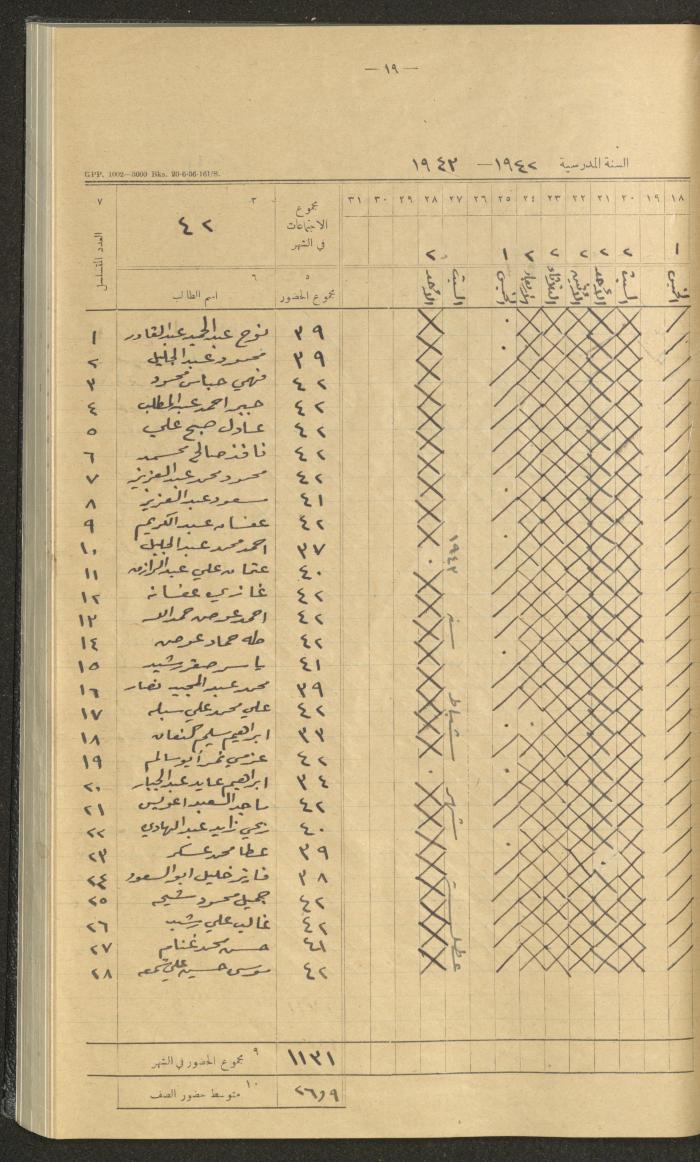 — ١٩ —
السنة المدرسية ١٩٤٢ — ١٩٤٣
GPP. 1002—3000 Bks. 20-6-36-161/S.
١٨ ١٩ ٢٠ ٢١ ٢٢ ٢٣ ٢٤ ٢٥ ٢٦ ٢٧ ٢٨ ٢٩ ٣٠ ٣١ مجموع الاجتماعات في الشهر ٣ ٧
٤٢
١ ٢ ٢ ٢ ٢ ٢ ١ ٢
الخميس السبت الأحد الاثنين الثلاثاء الأربعاء الخميس السبت الأحد
٥ مجموع الحضور ٦ اسم الطالب العدد المتسلسل
٣٩ نوح عبد الحميد عبد القادر ١
٣٩ محمود عبد الجليل ٢
٤٢ فهمي عباس محمود ٣
٤٢ جبر احمد عبد المطلب ٤
٤٢ عادل صبح علي ٥
٤٢ نافذ صالح محمد ٦
٤٢ محمود محمد عبد العزيز ٧
٤١ مسعود عبد العزيز ٨
٤٢ عفان عبد الكريم ٩
٣٧ احمد محمد عبد الجليل ١٠
٤٠ عثمان علي عبد الرازق ١١
٤٢ غازي عفانه ١٢
٤٢ احمد عوض حمد الله ١٣
٤٢ طه حماد عوض ١٤
٤١ ياسر صقر رشيد ١٥
٣٩ محمد عبد المجيد نصار ١٦
٤٢ علي محمد علي ١٧
٣٣ ابراهيم سليم كنعان ١٨
٤٢ عزمي نمر أبو سالم ١٩
٣٤ ابراهيم عايد عبد الجبار ٢٠
٤٢ ماجد السعيد اعويس ٢١
٤٠ يحيى زايد عبد الهادي ٢٢
٣٩ عطا محمد عسكر ٢٣
٣٨ فايز خليل ابو السعود ٢٤
٤٢ جميل محمود ٢٥
٤٢ غالب علي رشيد ٢٦
٤١ حسن محمد غنام ٢٧
٤٢ موسى حسين علي ٢٨
عطلة شهر شباط سنة ١٩٤٣
١١٣١ ٩ مجموع الحضور في الشهر
٢٦٫٩ ١٠ متوسط حضور الصف